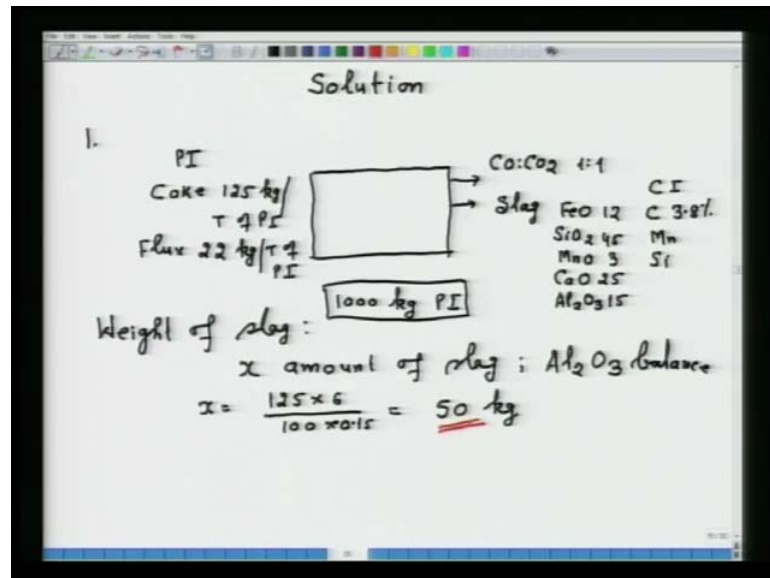 Solution
1.
PI
Coke 125 kg/
T of PI
Flux 22 kg/T of
PI
CO:CO2 1:1
Slag FeO 12
SiO2 45
MnO 3
CaO 25
Al2O3 15
CI
C 3.8%
Mn
Si
1000 kg PI
Weight of slag:
x amount of slag; Al2O3 balance
x = 125 x 6 / 100 x 0.15 = 50 kg